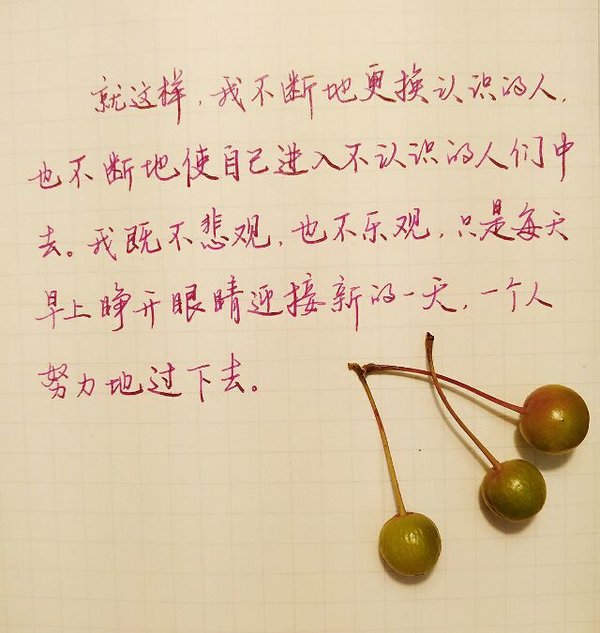 就这样，我不断地更换认识的人，
也不断地使自己进入不认识的人们中
去。我既不悲观，也不乐观，只是每天
早上睁开眼睛迎接新的一天，一个人
努力地过下去。